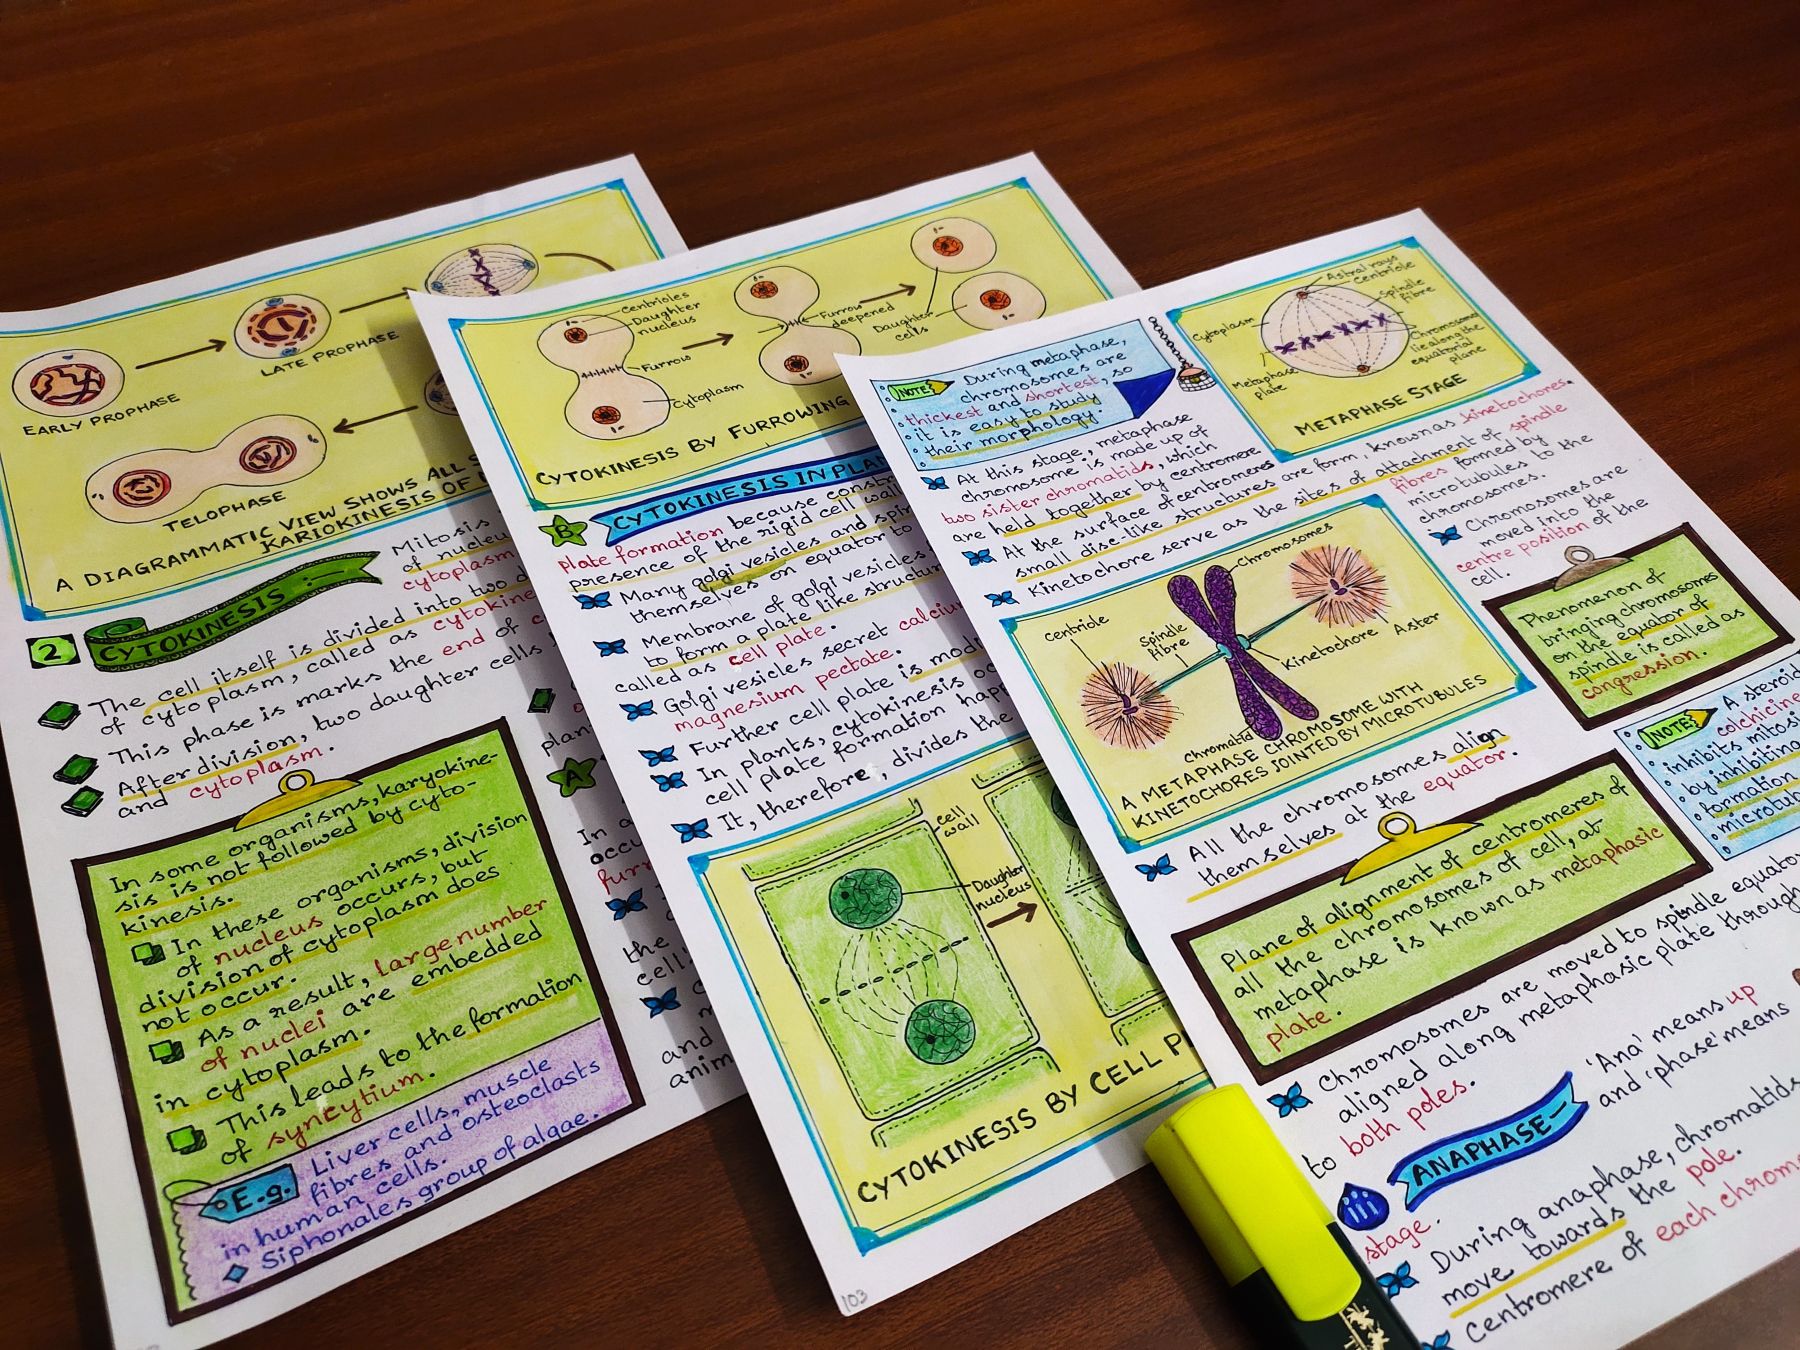 EARLY PROPHASE
LATE PROPHASE
TELOPHASE
A DIAGRAMMATIC VIEW SHOWS ALL
KARIOKINESIS OF
Mitosis
of nucle
cytoplasm
2 CYTOKINESIS :-
The cell itself is divided into two d
of cytoplasm, called as cytokine
This phase is marks the end of
After division, two daughter cells
and cytoplasm.
In some organisms, karyokine-
sis is not followed by cyto-
kinesis.
In these organisms, division
of nucleus occurs, but
division of cytoplasm does
not occur.
As a result, large number
of nuclei are embedded
in cytoplasm.
This leads to the formation
of syncytium.
E.g. Liver cells, muscle
fibres and osteoclasts
in human cells.
Siphonales group of algae.
plan
A
In a
occu
furr
the
cell.
and
anim
Centrioles
Daughter
nucleus
Furrow
Cytoplasm
Furrow
deepened
Daughter
cells
CYTOKINESIS BY FURROWING
B CYTOKINESIS IN PLAN
Plate formation because constr
presence of the rigid cell wall
Many golgi vesicles and spin
themselves on equator to
Membrane of golgi vesicles,
to form a plate like structur
called as cell plate.
Golgi vesicles secret calcium
magnesium pectate.
Further cell plate is modi
In plants, cytokinesis oc
cell plate formation happ
It, therefore, divides the
cell
wall
Daughter
nucleus
CYTOKINESIS BY CELL P
103
NOTE During metaphase,
chromosomes are
thickest and shortest, so
it is easy to study
their morphology.
Astral rays
Centriole
Spindle
fibre
Cytoplasm
Chromosomes
lie along the
equatorial
plane
Metaphase
plate
METAPHASE STAGE
At this stage, metaphase
chromosome is made up of
two sister chromatids, which
are held together by centromere
At the surface of centromeres
small disc-like structures are form, known as kinetochores.
Kinetochore serve as the sites of attachment of spindle
fibres formed by
microtubules to the
chromosomes.
Chromosomes are
moved into the
centre position of the
cell.
Chromosomes
Centriole
Spindle
fibre
Aster
Kinetochore
Chromatid
A METAPHASE CHROMOSOME WITH
KINETOCHORES JOINTED BY MICROTUBULES
Phenomenon of
bringing chromosomes
on the equator of
spindle is called as
congression.
NOTE A steroid
colchicine
inhibits mitosi
by inhibiting
formation
microtub
All the chromosomes align
themselves at the equator.
Plane of alignment of centromeres of
all the chromosomes of cell, at
metaphase is known as metaphasic
plate.
Chromosomes are moved to spindle equator
aligned along metaphasic plate through
to both poles.
iii ANAPHASE:- 'Ana' means up
and 'phase' means
stage.
During anaphase, chromatids
move towards the pole.
Centromere of each chromo